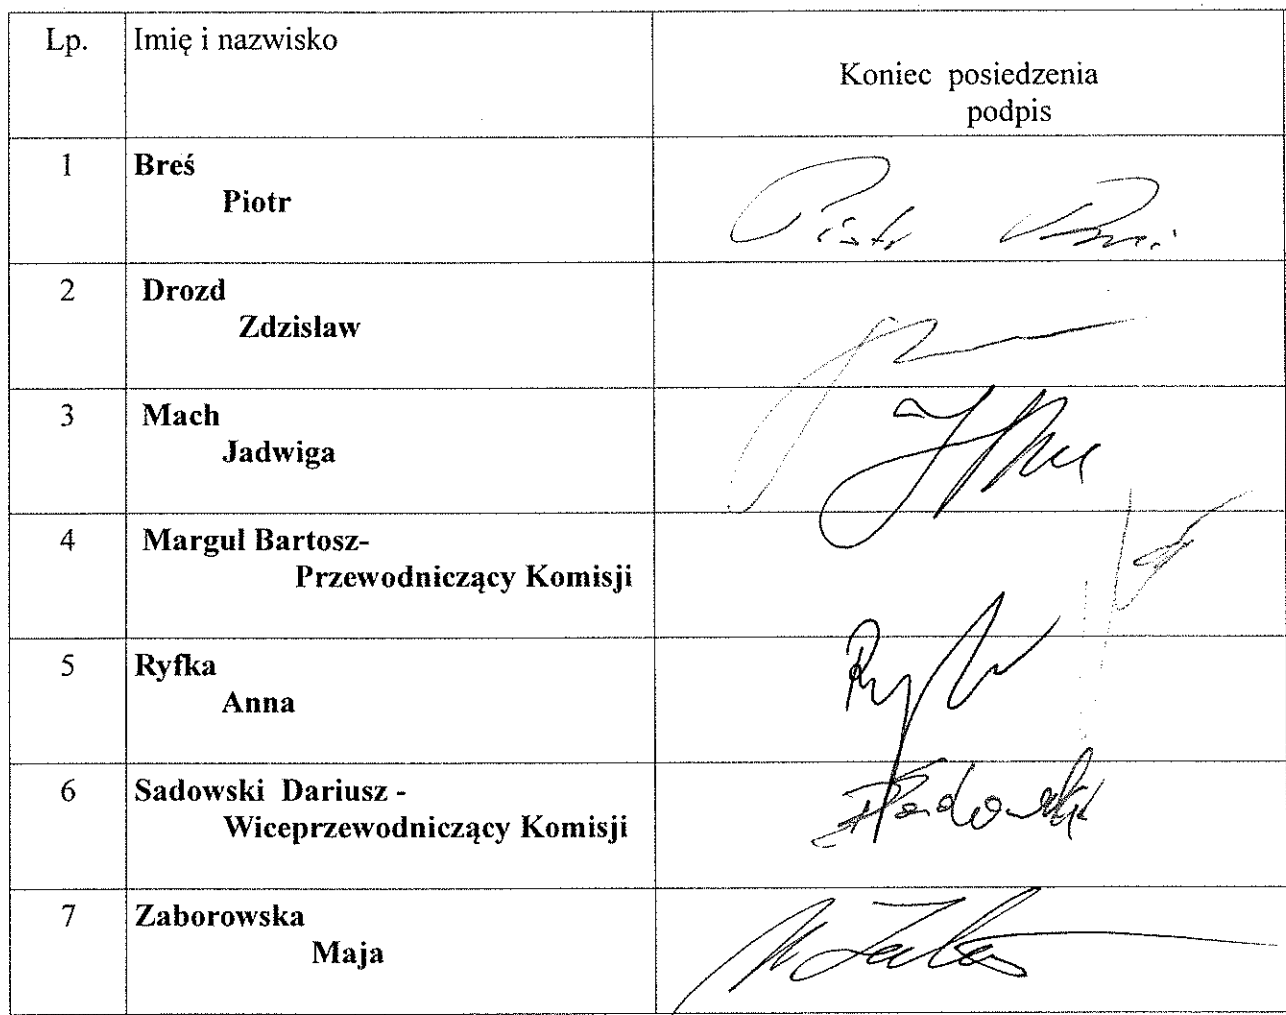 Lp.
Imię i nazwisko
Koniec posiedzenia
podpis
1
Breś
Piotr
Piotr Breś
2
Drozd
Zdzisław
3
Mach
Jadwiga
4
Margul Bartosz-
Przewodniczący Komisji
5
Ryfka
Anna
6
Sadowski Dariusz -
Wiceprzewodniczący Komisji
DSadowski
7
Zaborowska
Maja